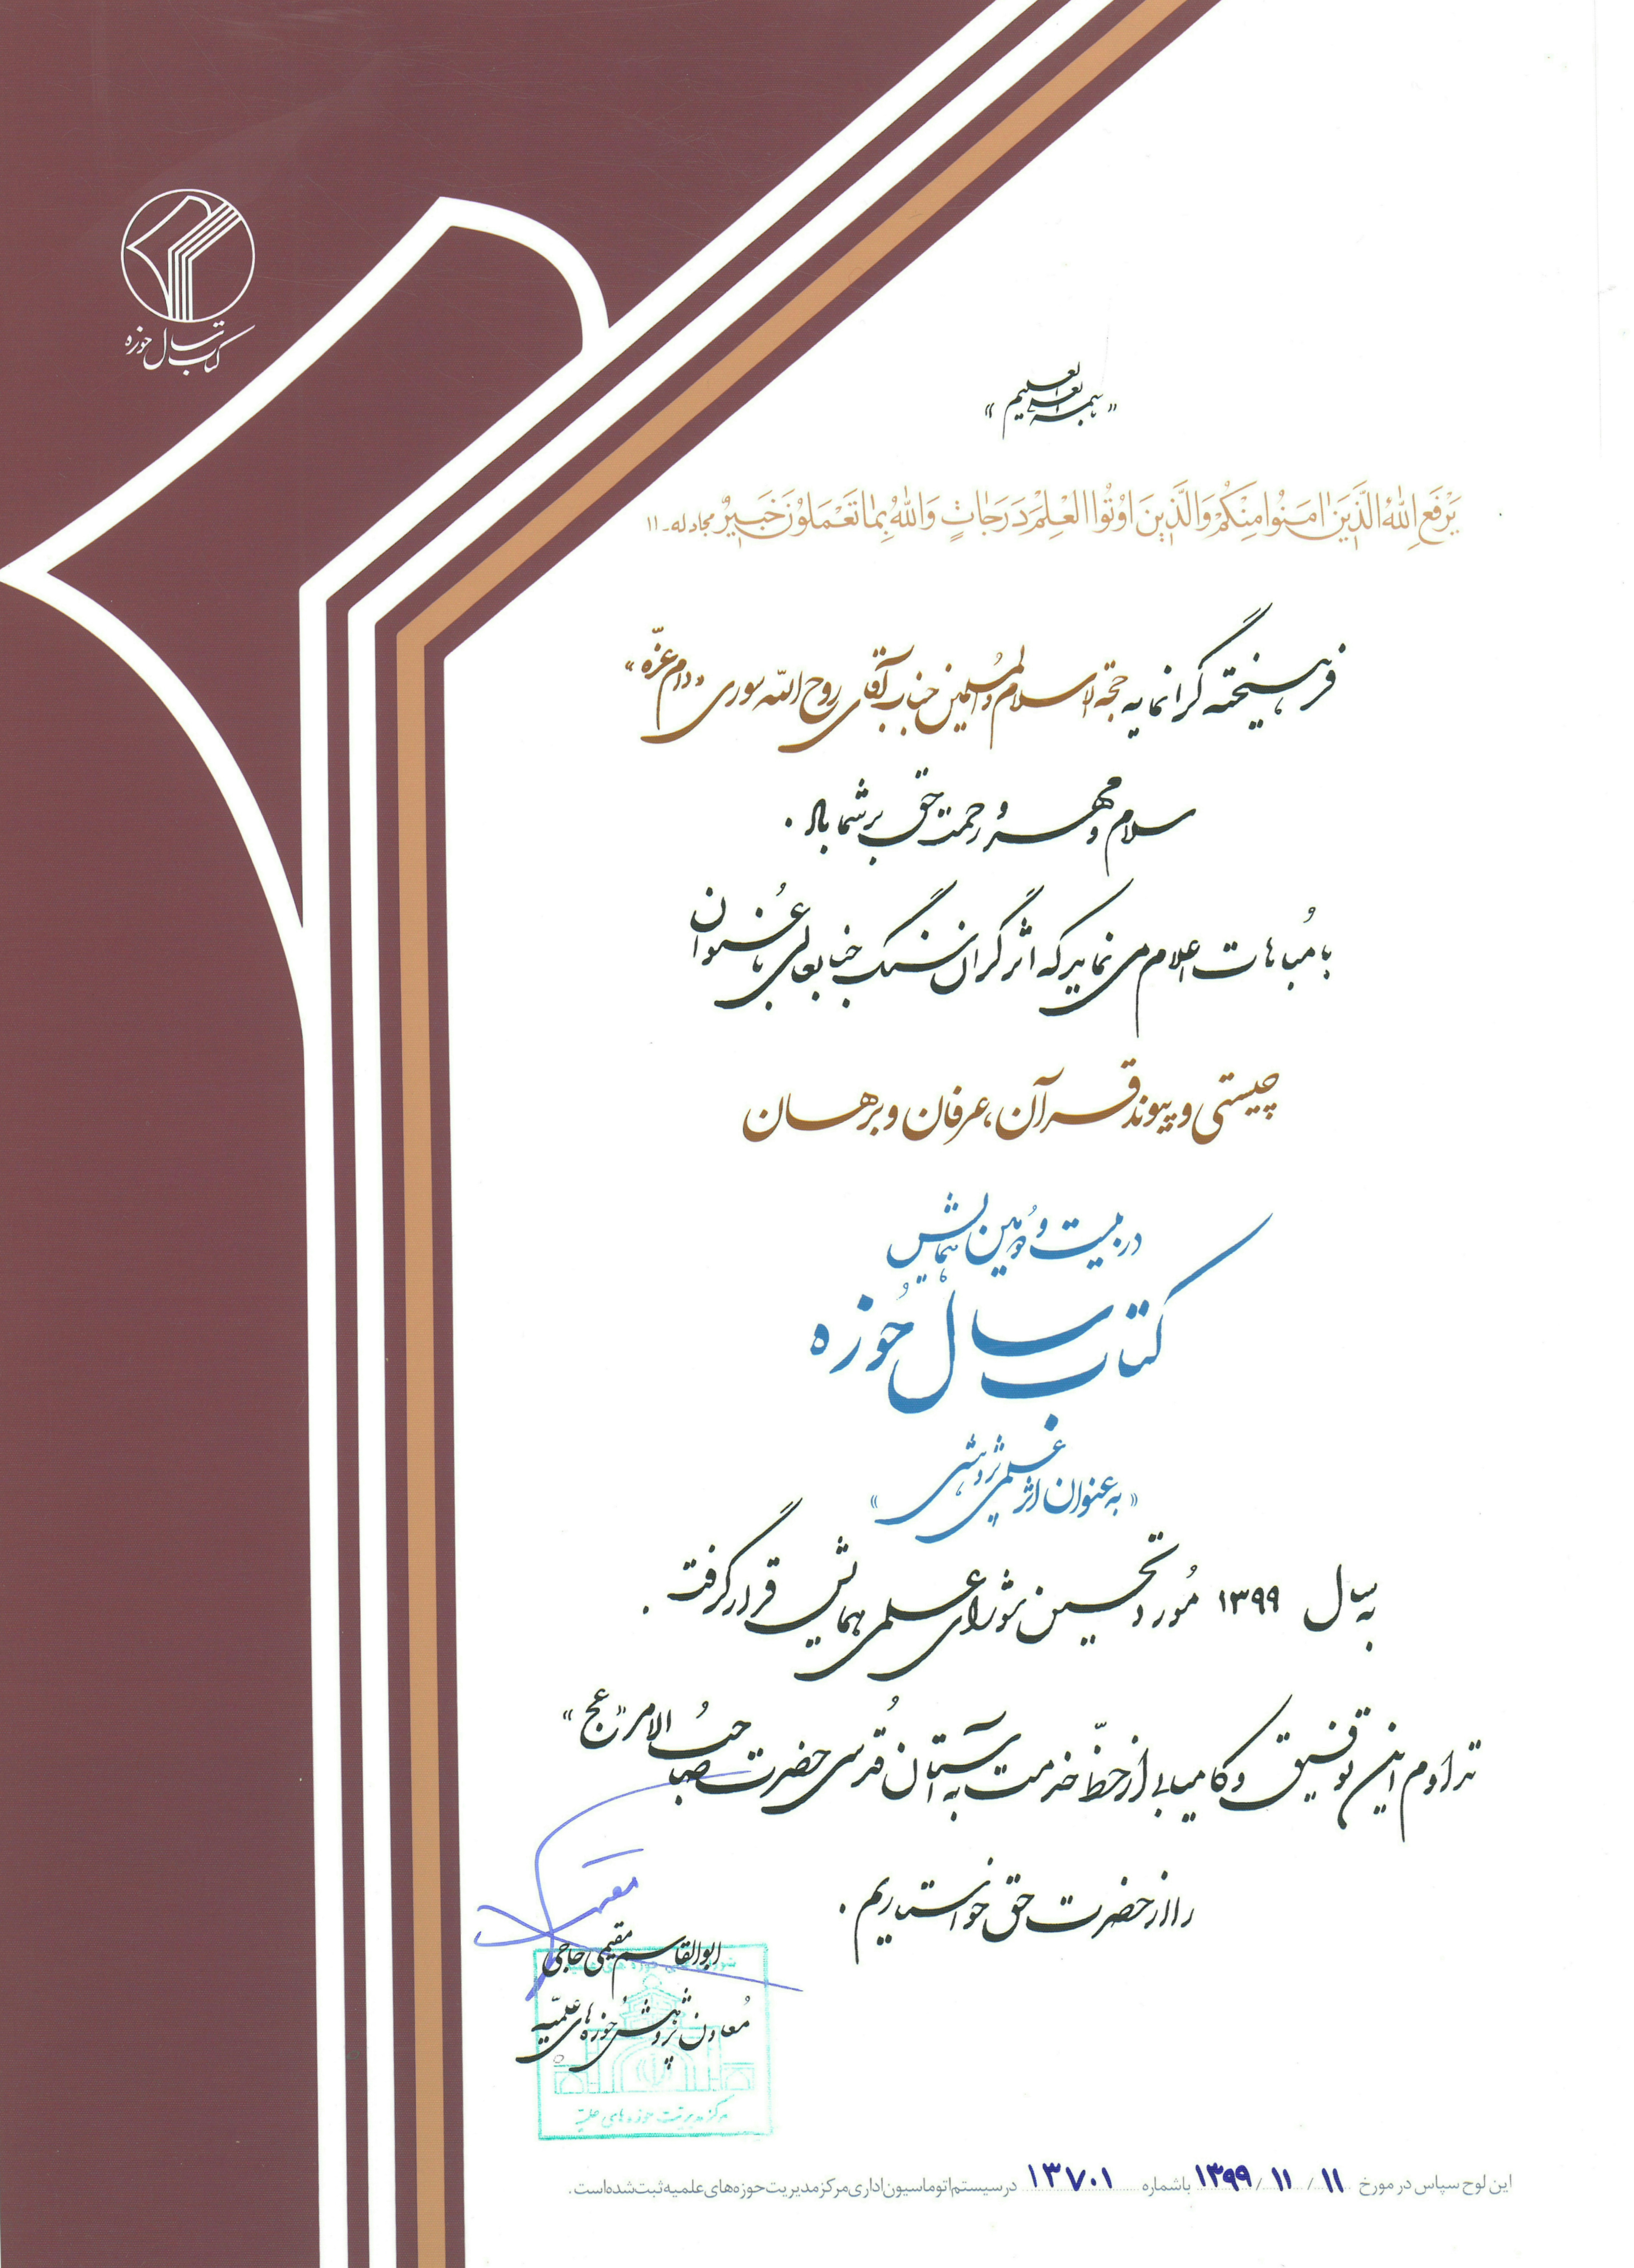 کتاب سال حوزه
«بسمه العلیم»
یَرْفَعِ اللهُ الَّذینَ امَنُوا مِنْکُمْ وَالَّذینَ اُوتُوا الْعِلْمَ دَرَجاتٍ وَاللهُ بِما تَعْمَلُونَ خَبیرٌ مجادله-۱۱
فرهیخته گرانمایه حجة الاسلام والمسلمین جناب آقای روح الله سوری «دام عزّه»
سلام و مهر و رحمت حق بر شما باد.
با مُباهات اعلام می نماید که اثر گران سنگ جنابعالی با عُنوان
چیستی و پیوند قرآن، عرفان و برهان
در بیست و دومین همایش
کتاب سال حُوزه
«به عنوان اثر علمی پژوهشی»
به سال ۱۳۹۹ مُورد تحسین شورای علمی همایش قرار گرفت.
تداوم این توفیق و کامیابی از حظّ خدمت به آستان قُدسی حضرت صاحبُ الامر «عج»
را از حضرت حق خواستاریم.
ابوالقاسم مقیمی حاجی
مُعاون پژوهش حُوزه های علمیّه
مرکز مدیریت حوزه های علمیه
این لوح سپاس در مورخ ۱۱ / ۱۱ / ۱۳۹۹ باشماره ۱۳۷۰۱ در سیستم اتوماسیون اداری مرکز مدیریت حوزه‌های علمیه ثبت شده است.